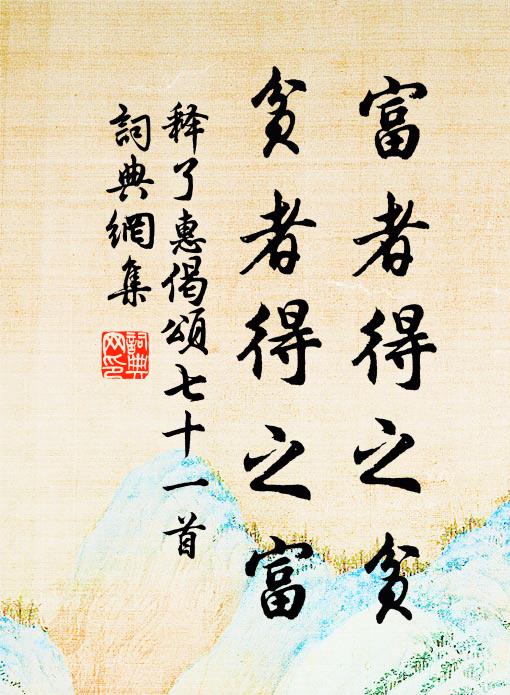 富者得之贫
贫者得之富
释了惠偈颂七十一首
詞典網集
詞典
网印